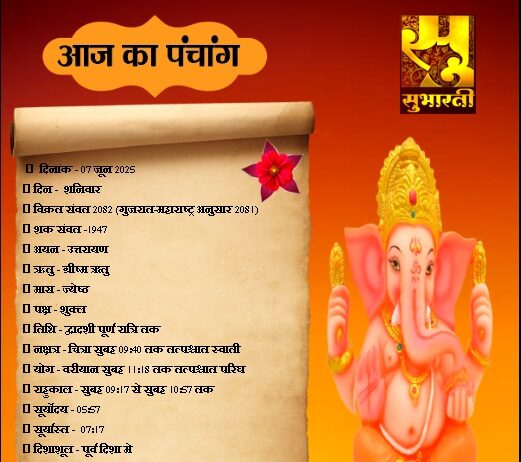 आज का पंचांग
सुभारती
दिनाक - 07 जून 2025
दिन - शनिवार
विक्रत संवत 2082 (गुजरात-महाराष्ट्र अनुसार 2081)
शक संवत -1947
अयन - उत्तरायण
ऋतु - ग्रीष्म ऋतु
मास - ज्येष्ठ
पक्ष - शुक्ल
तिथि - द्वादशी पूर्ण रात्रि तक
नक्षत्र - चित्रा सुबह 09:40 तक तत्पश्चात स्वाती
योग - वरीयान सुबह 11:18 तक तत्पश्चात परिघ
राहुकाल - सुबह 09:17 से सुबह 10:57 तक
सूर्योदय - 05:57
सूर्यास्त - 07:17
दिशाशूल - पूर्व दिशा मे